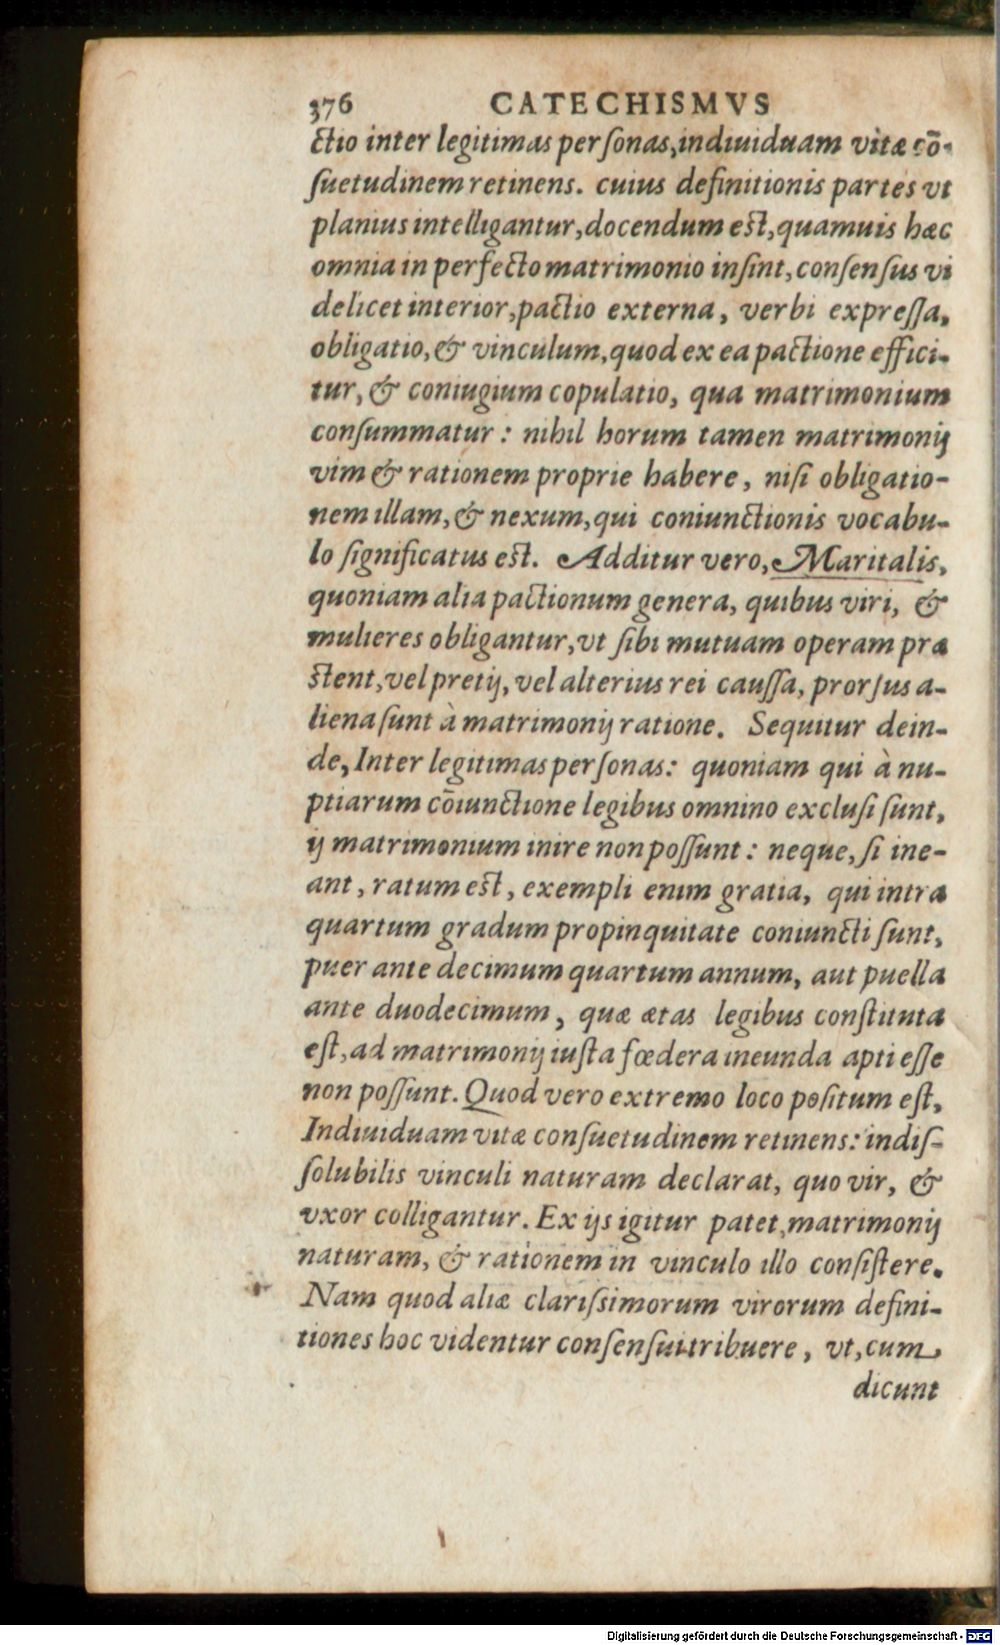 376 CATECHISMVS
ctio inter legitimas personas, indiuiduam vitæ cō-
suetudinem retinens. cuius definitionis partes vt
planius intelligantur, docendum est, quamuis hæc
omnia in perfecto matrimonio insint, consensus vi
delicet interior, pactio externa, verbi expressa,
obligatio, & vinculum, quod ex ea pactione effici-
tur, & coniugium copulatio, qua matrimonium
consummatur: nihil horum tamen matrimonij
vim & rationem proprie habere, nisi obligatio-
nem illam, & nexum, qui coniunctionis vocabu-
lo significatus est. Additur vero, Maritalis,
quoniam alia pactionum genera, quibus viri, &
mulieres obligantur, vt sibi mutuam operam præ
stent, vel pretij, vel alterius rei caussa, prorsus a-
liena sunt à matrimonij ratione. Sequitur dein-
de, Inter legitimas personas: quoniam qui à nu-
ptiarum cōiunctione legibus omnino exclusi sunt,
ij matrimonium inire non possunt: neque, si ine-
ant, ratum est, exempli enim gratia, qui intra
quartum gradum propinquitate coniuncti sunt,
puer ante decimum quartum annum, aut puella
ante duodecimum, quæ ætas legibus constituta
est, ad matrimonij iusta fœdera ineunda apti esse
non possunt. Quod vero extremo loco positum est,
Indiuiduam vitæ consuetudinem retinens: indis-
solubilis vinculi naturam declarat, quo vir, &
vxor colligantur. Ex ijs igitur patet, matrimonij
naturam, & rationem in vinculo illo consistere.
Nam quod aliæ clarissimorum virorum defini-
tiones hoc videntur consensui tribuere, vt, cum
dicunt
Digitalisierung gefördert durch die Deutsche Forschungsgemeinschaft - DFG